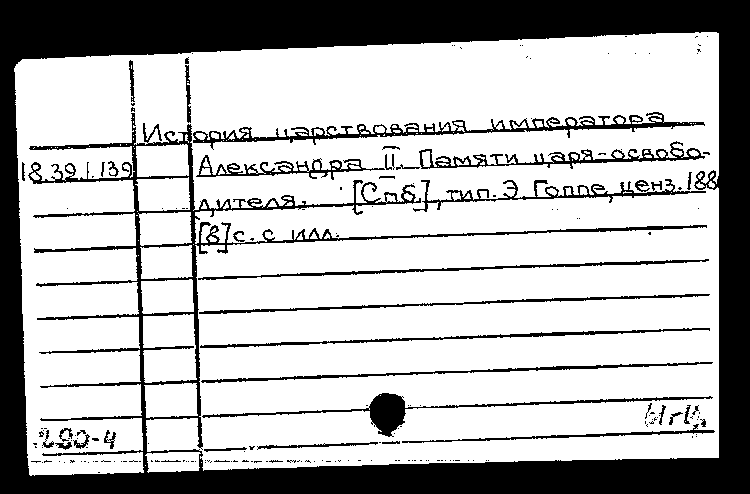 История царствования императора
18.391.139 Александра II. Памяти царя-освобо-
дителя. [Спб.], тип. Э. Гоппе, ценз. 188
[8] с. с илл.
290-4